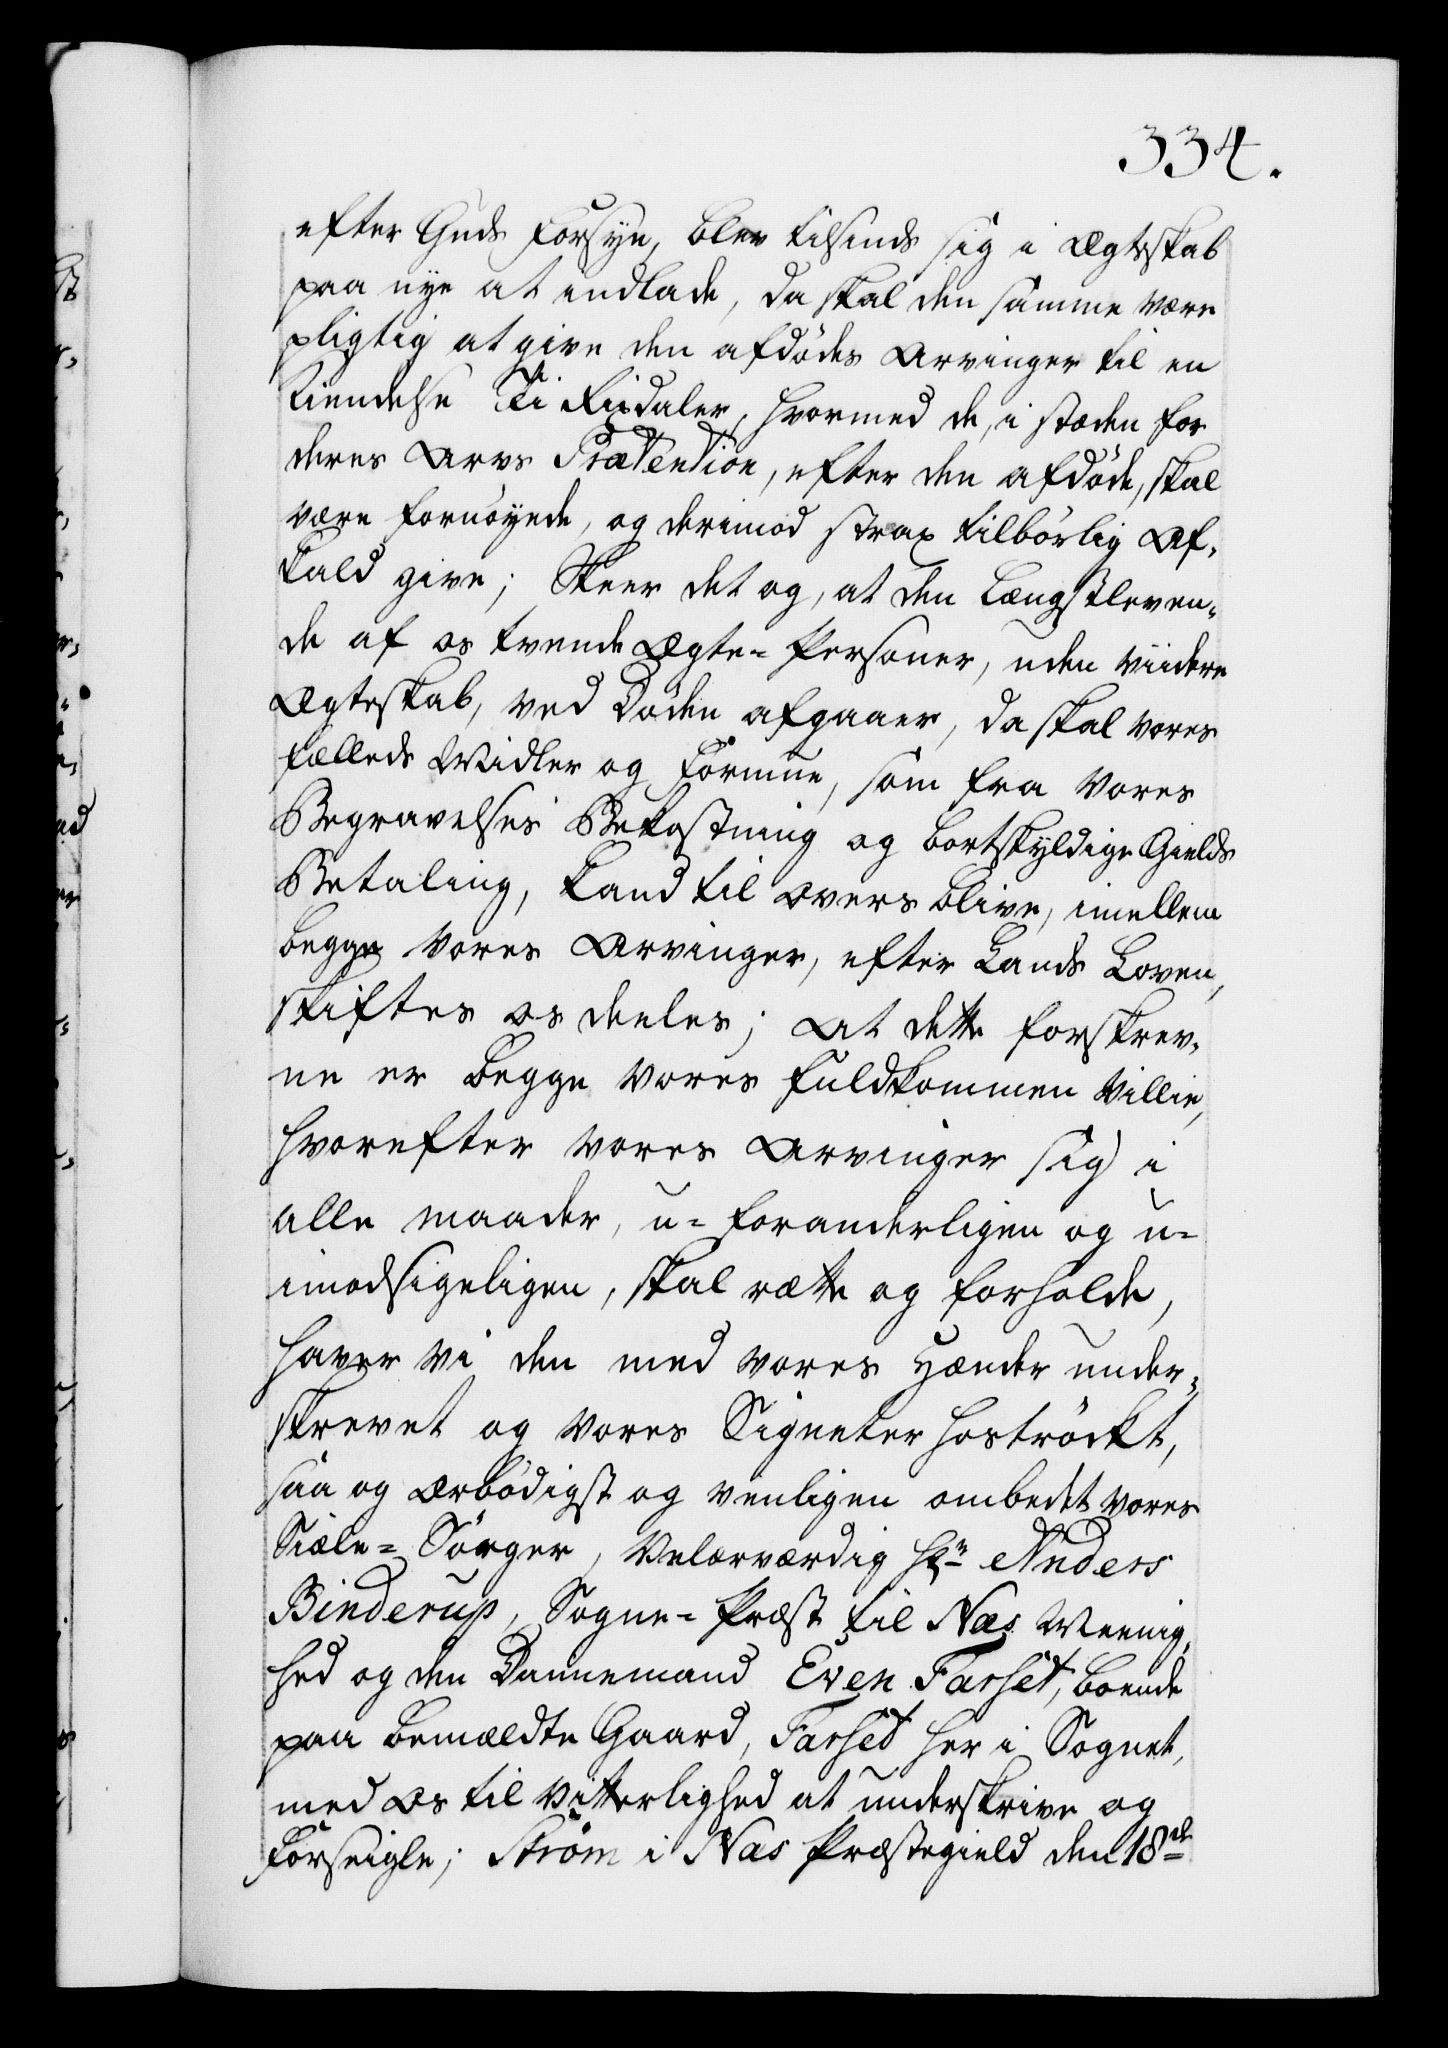 334.
efter Guds Forsyn, blev tilsinds sig i Ægteskab
paa nye at indlade, da skal den samme være
pligtig at give den afdödes Arvinger til en
Kiendelse Ti Rixdaler, hvormed de, i stæden for
deres Arvs Prætention, efter den afdöde, skal
være fornöyede, og derimod strax tilbörlig Af-
kald give; Skeer det og, at den Længstleven-
de af os tvende Ægte-Personer, uden viidere
Ægteskab, ved Döden afgaaer, da skal vores
fælleds Midler og Formue, som fra vores
Begravelses Bekostning og bortskyldige Gields
Betaling, kand til overs blive, imellem
begge vores Arvinger, efter Lands Loven,
skiftes os deeles; At dette forskrev-
ne er begge vores fuldkommen Villie,
hvorefter vores Arvinger sig i
alle maader, u-foranderligen og u-
imodsigeligen, skal rætte og forholde,
haver vi den med vores Hænder under-
skrevet og vores Signeter hoströckt,
saa og ærbödigst og venligen ombedet vores
Siæle-Sörger, Velærværdig Hr Anders
Binderup, Sogne-Præst til Næs Meenig-
hed og den Dannemand Even Farset, boende
paa bemældte Gaard, Farset her i Sognet,
med os til Vitterlighed at underskrive og
forseigle; Ström i Næs Præstegield den 18de